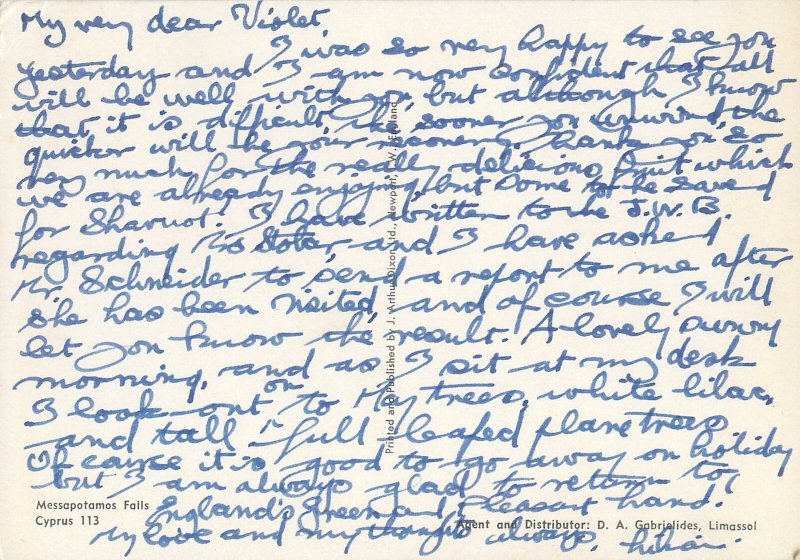 My very dear Violet
I was so very happy to see you
yesterday and I am now confident that all
will be well with you, but although I know
that it is difficult, the sooner you unwind, the
quicker will be your recovery. Thank you so
very much for the really delicious fruit which
we are already enjoying, but some to be saved
for Shavuot. I have written to the J.W.B.
regarding Mrs and I have asked
Mr. Schneider to send a report to me after
she has been visited, and of course I will
let you know the result. A lovely sunny
morning, and as I sit at my desk
I look out on to May trees, white lilac,
and tall full leafed plane trees
Of course it is good to go away on holiday
but I am always glad to return to
England's green and pleasant land.
My love and my thoughts always, Lilian.
Messapotamos Falls
Cyprus 113
Printed and Published by J. Arthur Dixon Ltd., Newport, I.W., England
Agent and Distributor: D. A. Gabrielides, Limassol